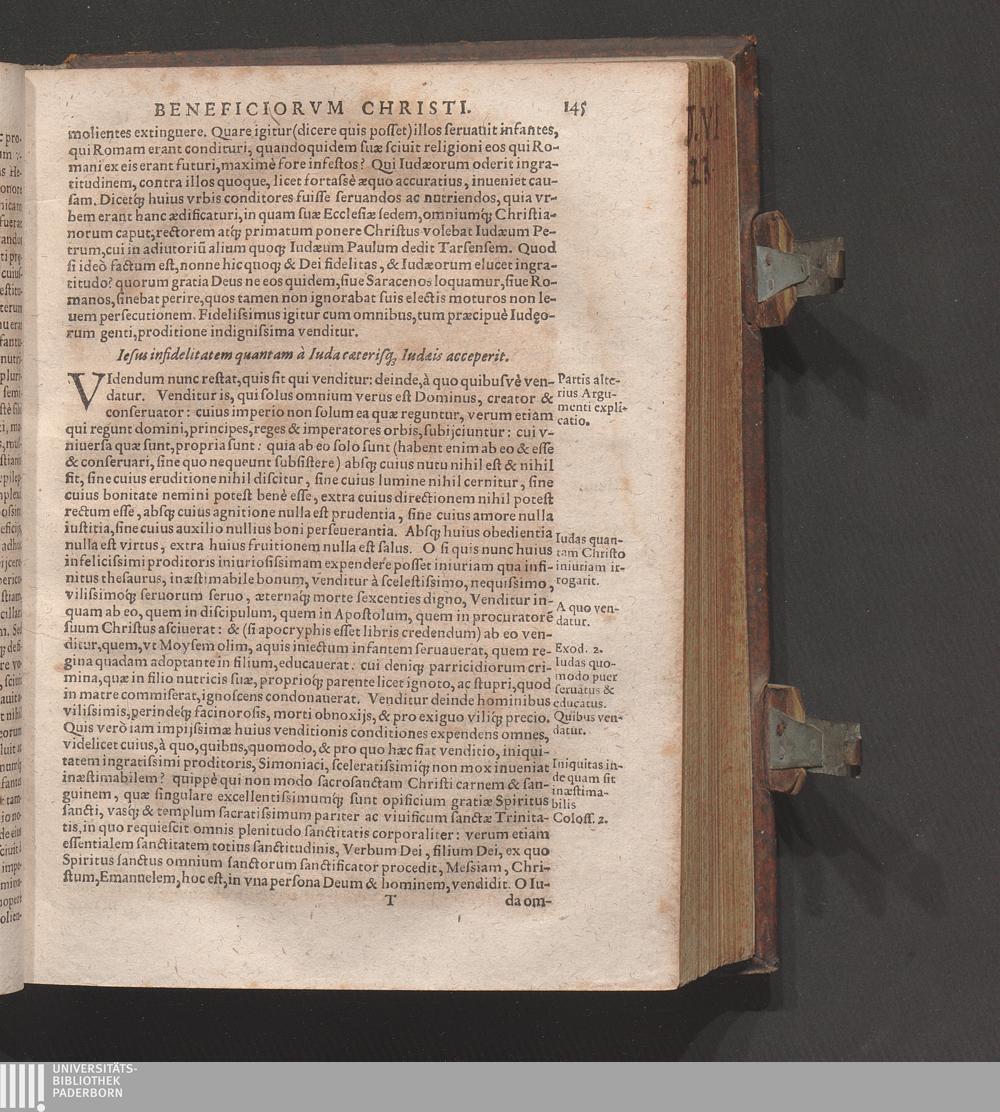 BENEFICIORVM CHRISTI. 145
molientes extinguere. Quare igitur (dicere quis posset) illos seruauit infantes,
qui Romam erant condituri, quandoquidem suæ sciuit religioni eos qui Ro-
mani ex eis erant futuri, maximè fore infestos? Qui Iudæorum oderit ingra-
titudinem, contra illos quoque, licet fortassè æquo accuratius, inueniet cau-
sam. Dicetq́; huius vrbis conditores fuisse seruandos ac nutriendos, quia vr-
bem erant hanc ædificaturi, in quam suæ Ecclesiæ sedem, omniumq́; Christia-
norum caput, rectorem atq́; primatum ponere Christus volebat Iudæum Pe-
trum, cui in adiutoriũ alium quoq; Iudæum Paulum dedit Tarsensem. Quod
si ideò factum est, nonne hic quoq; & Dei fidelitas, & Iudæorum elucet ingra-
titudo? quorum gratia Deus ne eos quidem, siue Saracenos loquamur, siue Ro-
manos, sinebat perire, quos tamen non ignorabat suis electis moturos non le-
uem persecutionem. Fidelissimus igitur cum omnibus, tum præcipuè Iudęo-
rum genti, proditione indignissima venditur.
Iesus infidelitatem quantam à Iuda cæterisq́; Iudæis acceperit.
VIdendum nunc restat, quis sit qui venditur: deinde, à quo quibusvè ven-
datur. Venditur is, qui solus omnium verus est Dominus, creator &
conseruator: cuius imperio non solum ea quæ reguntur, verum etiam
qui regunt domini, principes, reges & imperatores orbis, subijciuntur: cui v-
niuersa quæ sunt, propria sunt: quia ab eo solo sunt (habent enim ab eo & esse
& conseruari, sine quo nequeunt subsistere) absq́; cuius nutu nihil est & nihil
fit, sine cuius eruditione nihil discitur, sine cuius lumine nihil cernitur, sine
cuius bonitate nemini potest benè esse, extra cuius directionem nihil potest
rectum esse, absq́; cuius agnitione nulla est prudentia, sine cuius amore nulla
iustitia, sine cuius auxilio nullius boni perseuerantia. Absq́; huius obedientia
nulla est virtus, extra huius fruitionem nulla est salus. O si quis nunc huius
infelicissimi proditoris iniuriosissimam expendere posset iniuriam qua infi-
nitus thesaurus, inæstimabile bonum, venditur à scelestissimo, nequissimo,
vilissimoq́; seruorum seruo, æternaq́; morte sexcenties digno, Venditur in-
quam ab eo, quem in discipulum, quem in Apostolum, quem in procuratorẽ
suum Christus asciuerat: & (si apocryphis esset libris credendum) ab eo ven-
ditur, quem, vt Moysem olim, aquis iniectum infantem seruauerat, quem re-
gina quadam adoptante in filium, educauerat: cui deniq́; parricidiorum cri-
mina, quæ in filio nutricis suæ, proprioq́; parente licet ignoto, ac stupri, quod
in matre commiserat, ignoscens condonauerat. Venditur deinde hominibus
vilissimis, perindeq́; facinorosis, morti obnoxijs, & pro exiguo viliq́; precio.
Quis verò iam impijssimæ huius venditionis conditiones expendens omnes,
videlicet cuius, à quo, quibus, quomodo, & pro quo hæc fiat venditio, iniqui-
tatem ingratissimi proditoris, Simoniaci, sceleratissimiq́; non mox inueniat
inæstimabilem? quippè qui non modo sacrosanctam Christi carnem & san-
guinem, quæ singulare excellentissimumq́; sunt opificium gratiæ Spiritus
sancti, vasq́; & templum sacratissimum pariter ac viuificum sanctæ Trinita-
tis, in quo requiescit omnis plenitudo sanctitatis corporaliter: verum etiam
essentialem sanctitatem totius sanctitudinis, Verbum Dei, filium Dei, ex quo
Spiritus sanctus omnium sanctorum sanctificator procedit, Messiam, Chri-
stum, Emanuelem, hoc est, in vna persona Deum & hominem, vendidit. O Iu-
T da om-
Partis alte-
rius Argu-
menti expli-
catio.
Iudas quan-
tam Christo
iniuriam ir-
rogarit.
A quo ven-
datur.
Exod. 2.
Iudas quo-
modo puer
seruatus &
educatus.
Quibus ven-
datur.
Iniquitas in-
de quam sit
inæstima-
bilis
Coloss. 2.
UNIVERSITÄTS-
BIBLIOTHEK
PADERBORN